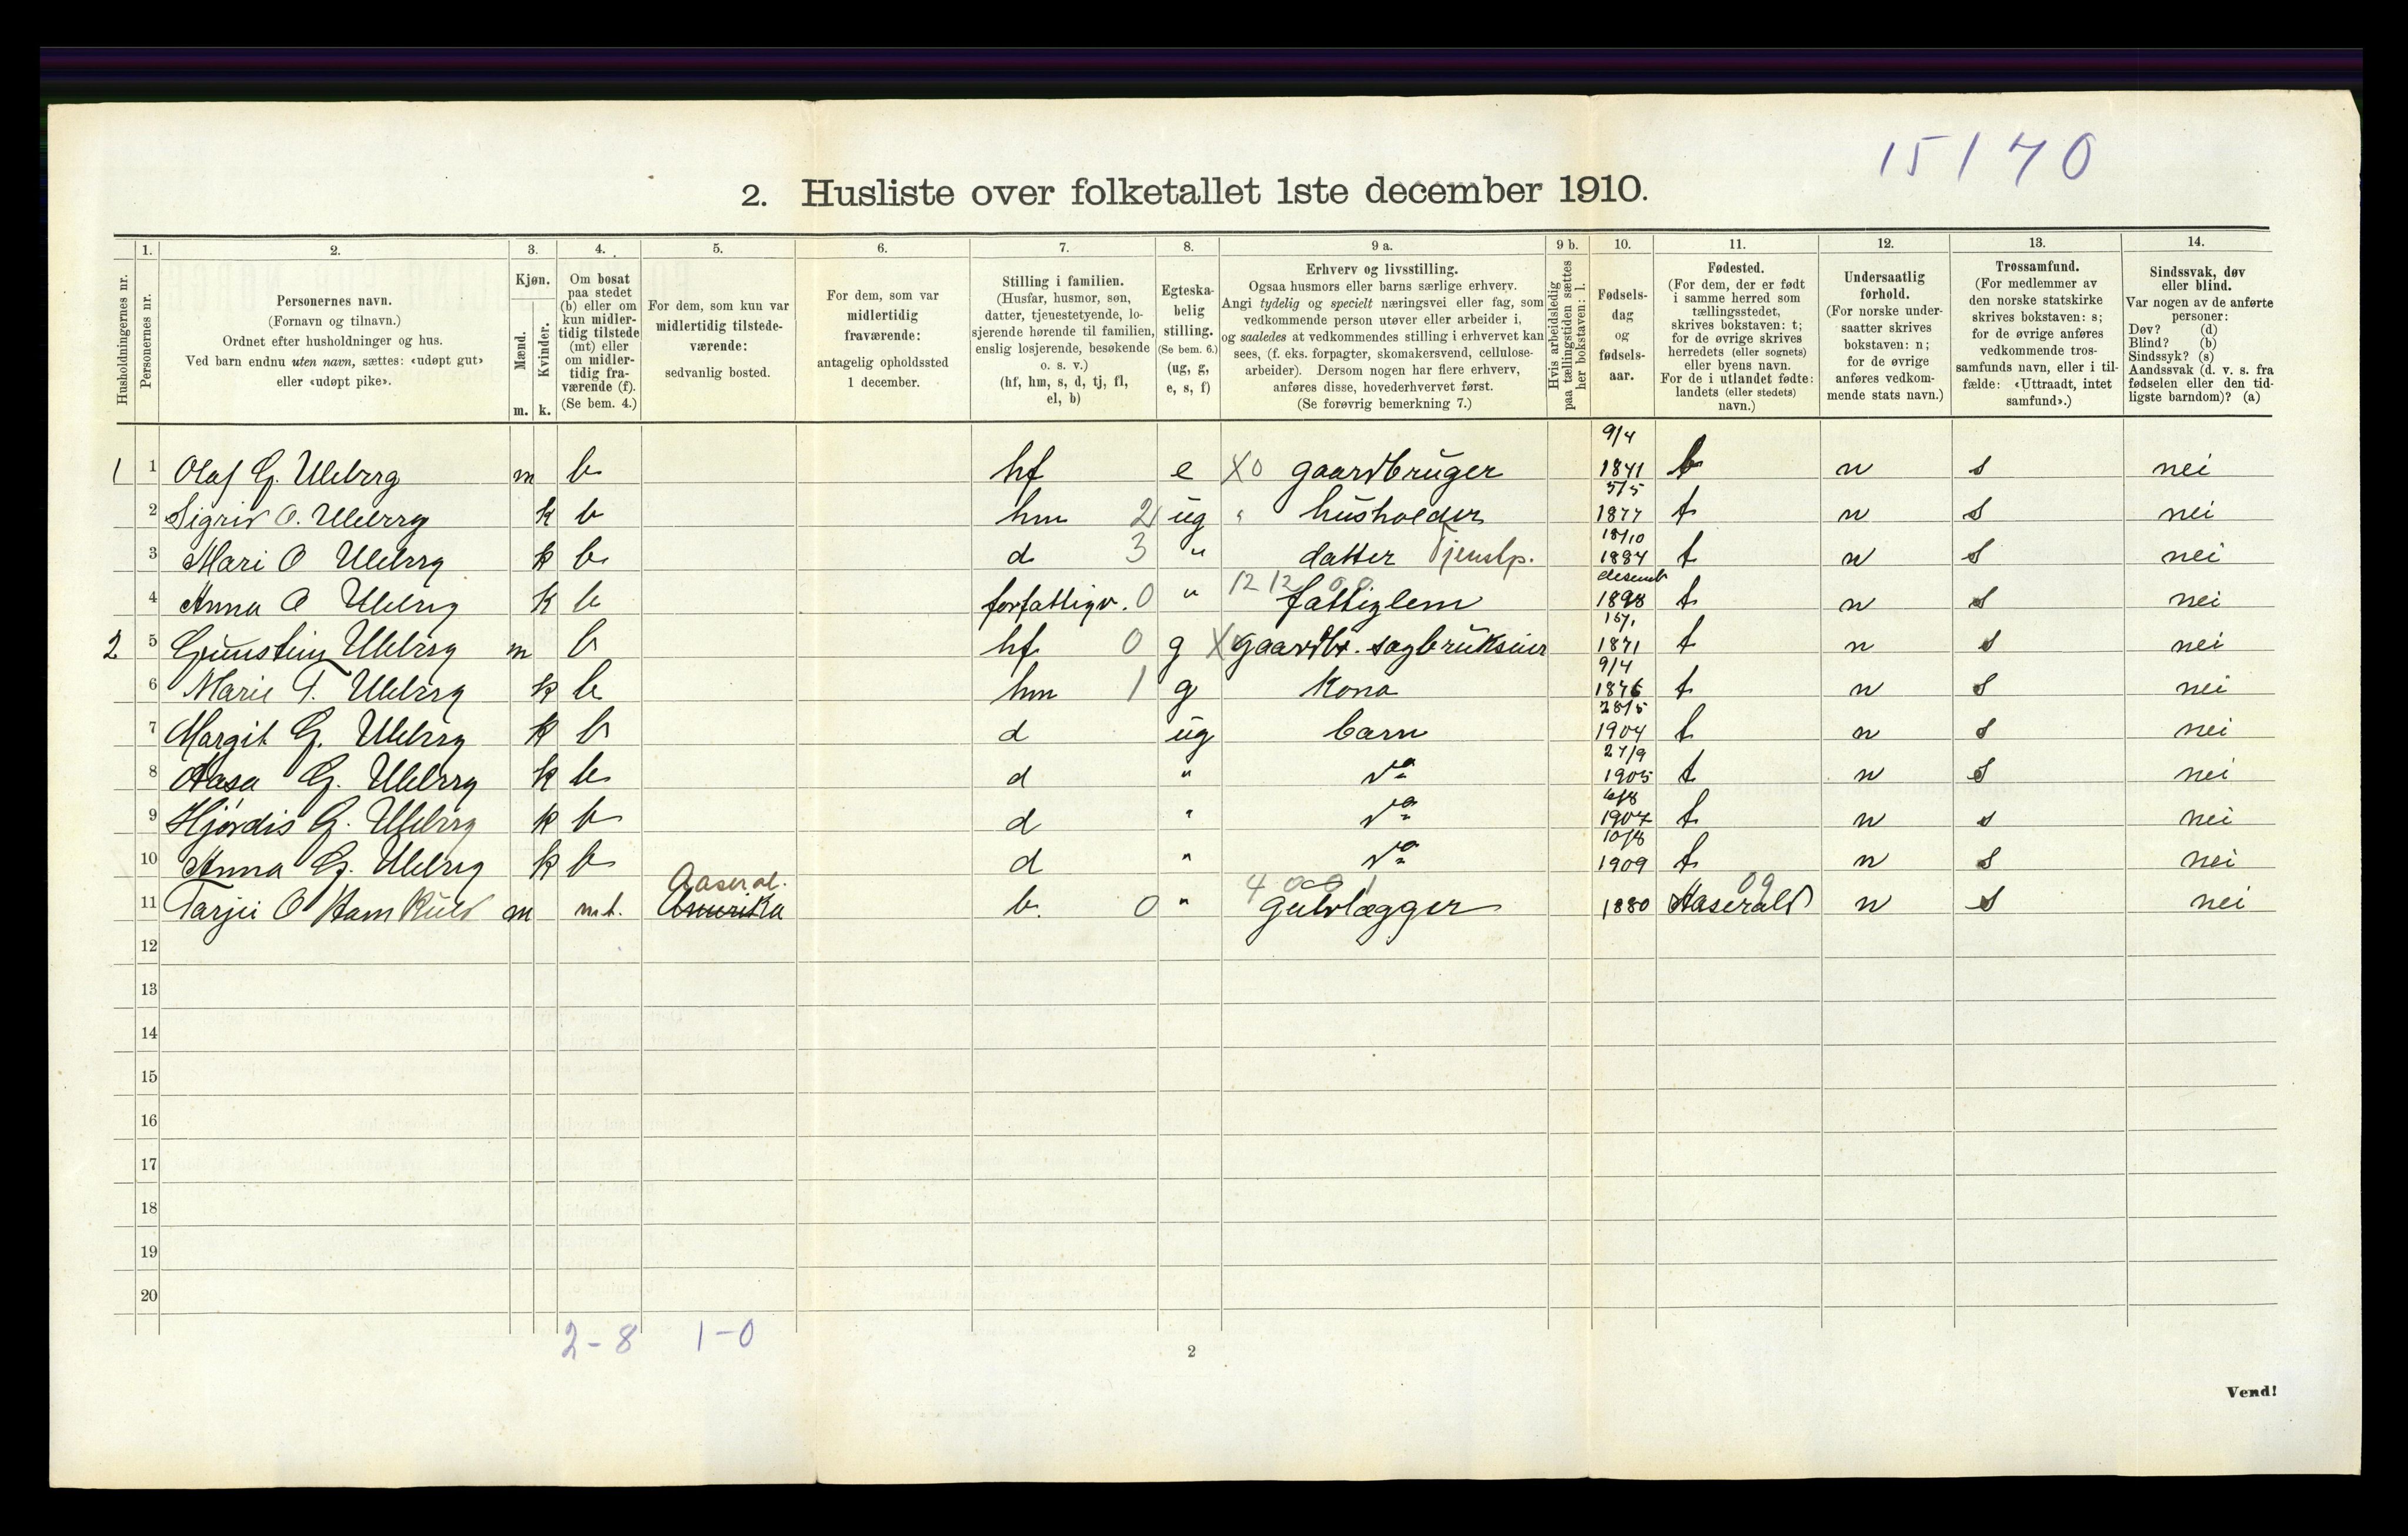 15170
2. Husliste over folketallet 1ste december 1910.
Husholdningernes nr.
1. Personernes nr.
2. Personernes navn.
(Fornavn og tilnavn.)
Ordnet efter husholdninger og hus.
Ved barn endnu uten navn, sættes: «udøpt gut»
eller «udøpt pike».
3. Kjøn.
Mænd. m.
Kvinder. k.
4. Om bosat
paa stedet
(b) eller om
kun midler-
tidig tilstede
(mt) eller
om midler-
tidig fra-
værende (f).
(Se bem. 4.)
5. For dem, som kun var
midlertidig tilstede-
værende:
sedvanlig bosted.
6. For dem, som var
midlertidig
fraværende:
antagelig opholdssted
1 december.
7. Stilling i familien.
(Husfar, husmor, søn,
datter, tjenestetyende, lo-
sjerende hørende til familien,
enslig losjerende, besøkende
o. s. v.)
(hf, hm, s, d, tj, fl,
el, b)
8. Egteska-
belig
stilling.
(Se bem. 6.)
(ug, g,
e, s, f)
9 a. Erhverv og livsstilling.
Ogsaa husmors eller barns særlige erhverv.
Angi tydelig og specielt næringsvei eller fag, som
vedkommende person utøver eller arbeider i,
og saaledes at vedkommendes stilling i erhvervet kan
sees, (f. eks. forpagter, skomakersvend, cellulose-
arbeider). Dersom nogen har flere erhverv,
anføres disse, hovederhvervet først.
(Se forøvrig bemerkning 7.)
9 b. Hvis arbeidsledig
paa tællingstiden sættes
her bokstaven: l.
10. Fødsels-
dag
og
fødsels-
aar.
11. Fødested.
(For dem, der er født
i samme herred som
tællingsstedet,
skrives bokstaven: t;
for de øvrige skrives
herredets (eller sognets)
eller byens navn.
For de i utlandet fødte:
landets (eller stedets)
navn.)
12. Undersaatlig
forhold.
(For norske under-
saatter skrives
bokstaven: n;
for de øvrige
anføres vedkom-
mende stats navn.)
13. Trossamfund.
(For medlemmer av
den norske statskirke
skrives bokstaven: s;
for de øvrige anføres
vedkommende tros-
samfunds navn, eller i til-
fælde: «Uttraadt, intet
samfund».)
14. Sindssvak, døv
eller blind.
Var nogen av de anførte
personer:
Døv? (d)
Blind? (b)
Sindssyk? (s)
Aandssvak (d. v. s. fra
fødselen eller den tid-
ligste barndom)? (a)
1 1 Olaf G. Uleberg m b hf e X0 gaardbruger 9/4 1841 t n s nei
2 Sigrid O. Uleberg k b hm 2 ug " husholder 5/5 1877 t n s nei
3 Mari O Uleberg k b d 3 " datter Tjenstp. 18/10 1884 t n s nei
4 Anna O Uleberg k b forfattigv. 0 " 12 12 fattiglem desemb 1898 t n s nei
2 5 Gunstein Uleberg m b hf 0 g X gaardbr. sagbrukseier 1871 t n s nei
6 Marie T. Uleberg k b hm 1 g Kona 9/4 1876 t n s nei
7 Margit G. Uleberg k b d ug barn 28/5 1904 t n s nei
8 Aasa G. Uleberg k b d " do 27/9 1905 t n s nei
9 Hjørdis G. Uleberg k b d " do 6/8 1907 t n s nei
10 Anna G. Uleberg k b d " do 10/8 1909 t n s nei
11 Tarjei O Ham Kuld m m.t. Aaseral. Amerika b. 0 " 4 gulvlægger 1880 Aaserald 09 n s nei
12
13
14
15
16
17
18
19
20
2-8 1-0
2
Vend!